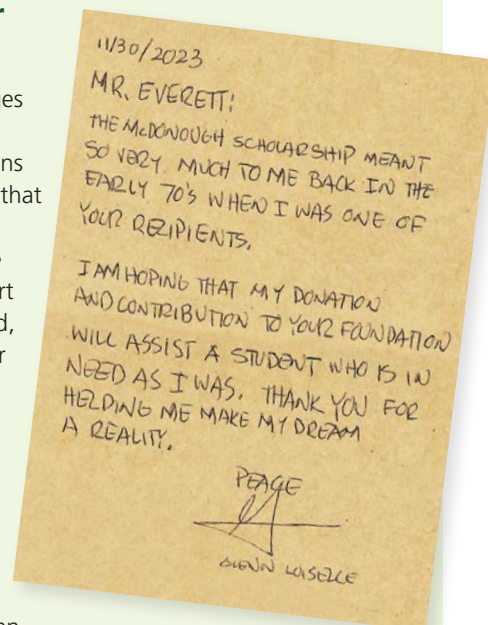 that
11/30/2023
MR. EVERETT:
THE McDONOUGH SCHOLARSHIP MEANT
SO VERY MUCH TO ME BACK IN THE
EARLY 70'S WHEN I WAS ONE OF
YOUR RECIPIENTS.
I AM HOPING THAT MY DONATION
AND CONTRIBUTION TO YOUR FOUNDATION
WILL ASSIST A STUDENT WHO IS IN
NEED AS I WAS. THANK YOU FOR
HELPING ME MAKE MY DREAM
A REALITY.
PEACE
GLENN LOISELLE